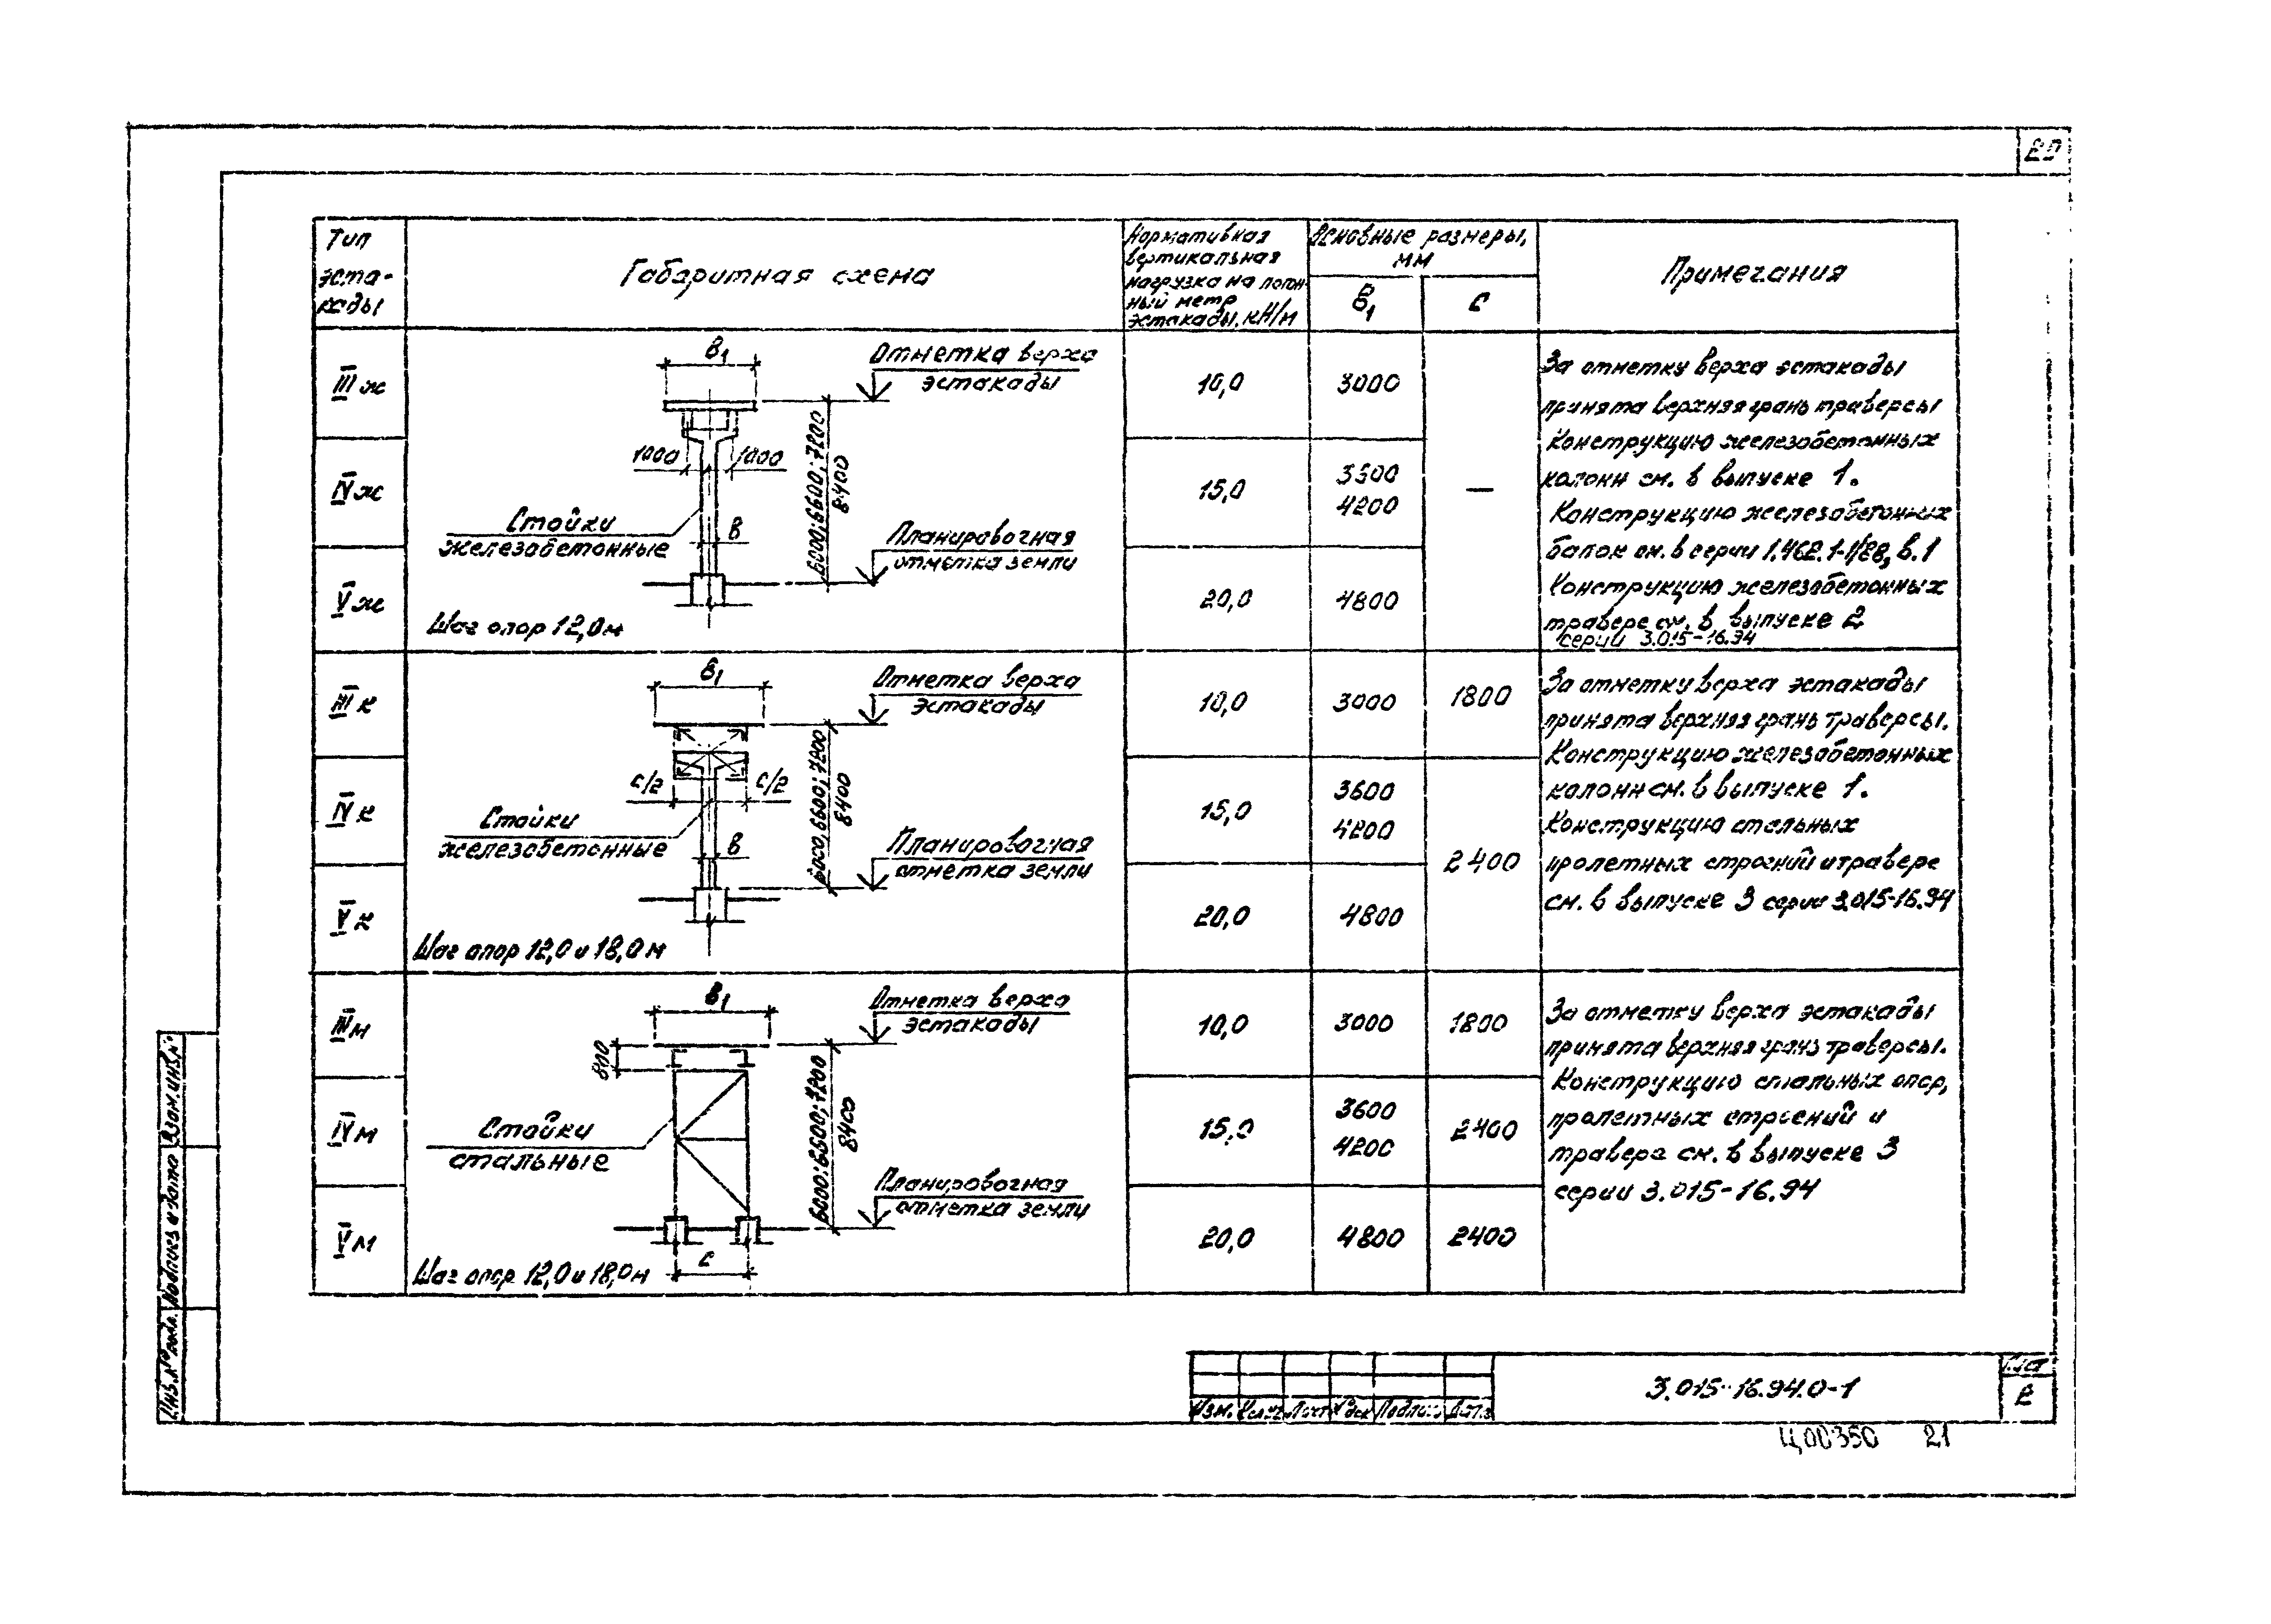 Тип
эста-
кады
Габаритная схема
Нормативная
вертикальная
нагрузка на погон-
ный метр
эстакады, кН/м
Основные размеры,
мм
В₁
С
Примечания
III ж
IV ж
V ж
В₁
Отметка верха
эстакады
1000
1000
6000; 6600; 7200
8400
Стойки
железобетонные
В
Планировочная
отметка земли
Шаг опор 12,0 м
10,0
3000
15,0
4200
—
20,0
4800
За отметку верха эстакады
принята верхняя грань траверсы
Конструкцию железобетонных
колонн см. в выпуске 1.
Конструкцию железобетонных
балок см. в серии 1.462.1-1/88, в.1
Конструкцию железобетонных
траверс см. в выпуске 2
серии 3.015-16.94
III к
IV к
V к
В₁
Отметка верха
эстакады
С/2
С/2
6000, 6600; 7200
8400
Стойки
железобетонные
В
Планировочная
отметка земли
Шаг опор 12,0 и 18,0 м
10,0
3000
1800
15,0
3600
4200
2400
20,0
4800
За отметку верха эстакады
принята верхняя грань траверсы.
Конструкцию железобетонных
колонн см. в выпуске 1.
Конструкцию стальных
пролетных строений и траверс
см. в выпуске 3 серии 3.015-16.94
III м
IV м
V м
В₁
Отметка верха
эстакады
6000; 6600; 7200
8400
Стойки
стальные
Планировочная
отметка земли
С
Шаг опор 12,0 и 18,0 м
10,0
3000
1800
15,0
3600
4200
2400
20,0
4800
2400
За отметку верха эстакады
принята верхняя грань траверсы.
Конструкцию стальных опор,
пролетных строений и
траверс см. в выпуске 3
серии 3.015-16.94
Взам. инв. №
Подпись и дата
Инв. № подл.
Изм.
Лист
№ док
Подпись
Дата
3.015-16.94.0-1
Лист
Ц00350 21